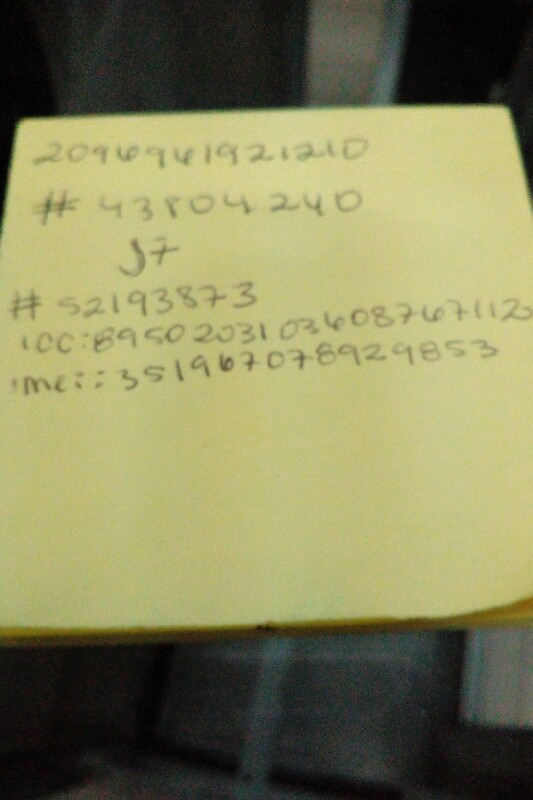 2096961921210
# 43804240
J7
# 52193873
ICC:8950203103608767112
imei:351967078929853